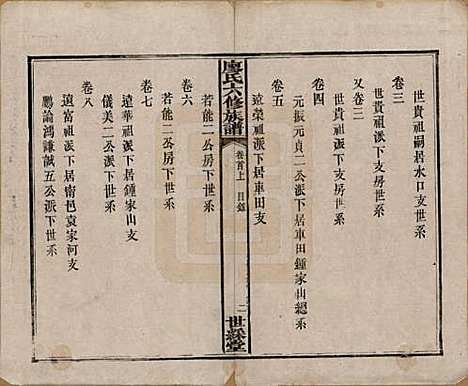 世貴祖嗣居水口支世系
卷三
世貴祖派下支房世系
又卷三
世貴祖派下支房世系
卷四
元振元貞二公派下居車田鍾家山總系
卷五
遠榮祖派下居車田支
廖氏六修族譜
卷首上
目錄
二
世綵堂
若能二公房下世系
卷六
若能二公房下世系
卷七
遠華祖派下居鍾家山支
儀美二公房下世系
卷八
遠富祖派下居南邑袁家河支
鵬論鴻謙誠五公派下世系